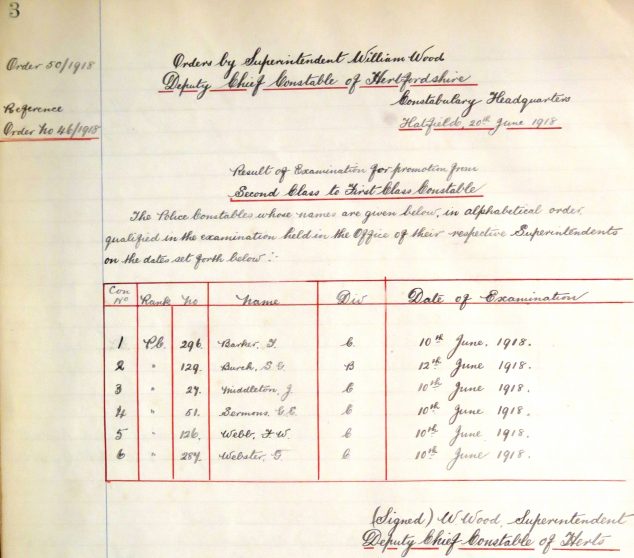 3
Order 50/1918
Reference
Order No 46/1918
Orders by Superintendent William Wood
Deputy Chief Constable of Hertfordshire
Constabulary Headquarters
Hatfield, 20th June 1918
Result of Examination for promotion from
Second Class to First Class Constable
The Police Constables whose names are given below, in alphabetical order,
qualified in the examination held in the Office of their respective Superintendents
on the dates set forth below :-
Con No Rank No Name Div Date of Examination
1 P.C. 296. Barker, F. C 10th June. 1918.
2 " 129. Burch, S.G. B 12th June 1918.
3 " 27. Middleton, J. C 10th June 1918.
4 " 51. Sermons, G.E. C 10th June 1918.
5 " 126. Webb, F.W. C 10th June 1918.
6 " 287. Webster, G. C 10th June 1918.
(Signed) W Wood, Superintendent
Deputy Chief Constable of Herts